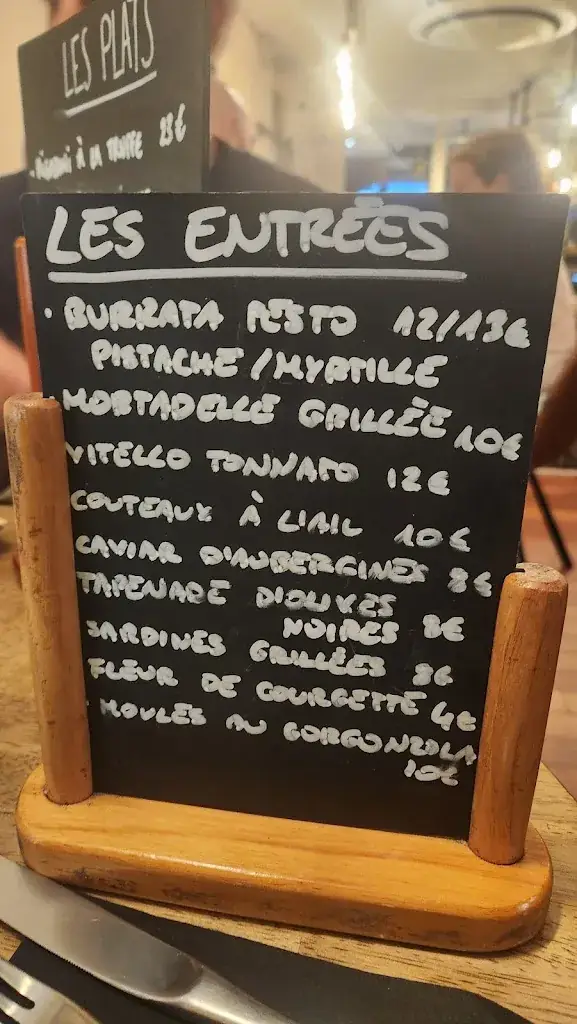 LES PLATS
À LA TRUFFE 23€
LES ENTRÉES
• BURRATA PESTO 12/13€
PISTACHE/MYRTILLE
MORTADELLE GRILLÉE 10€
VITELLO TONNATO 12€
COUTEAUX À L'AIL 10€
CAVIAR D'AUBERGINES 8€
TAPENADE D'OLIVES
NOIRES 8€
SARDINES GRILLÉES 8€
FLEUR DE COURGETTE 4€
• MOULES AU GORGONZOLA
10€